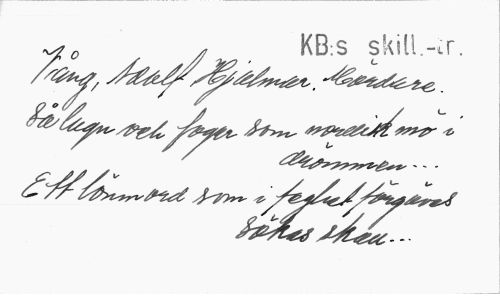 KB:s skill.-tr.
Vång, Adolf Hjalmar. Mördare.
Så lugn och fager som nordisk mö i
drömmen...
Ett lönmord som i seglat förgäves
sökas skall...